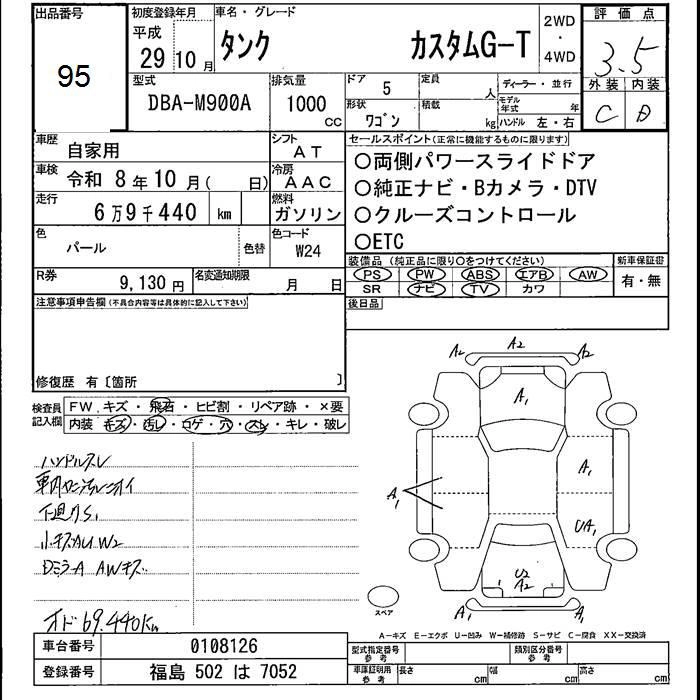 出品番号
95
初度登録年月
平成
29 10 月
車名・グレード
タンク カスタムG-T
2WD
・
4WD
評価点
3.5
外装 内装
C D
型式
DBA-M900A
排気量
1000
cc
ドア
5
定員
人
形状
ワゴン
積載
kg
ディーラー・並行
モデル年式 年
ハンドル 左・右
車歴
自家用
シフト
AT
車検
令和 8年10月( 日)
冷房
AAC
走行
6万9千440 km
燃料
ガソリン
色
パール
色替
色コード
W24
R券
9,130 円
名変通知期限
月 日
セールスポイント(正常に機能するものに限ります)
○両側パワースライドドア
○純正ナビ・Bカメラ・DTV
○クルーズコントロール
○ETC
装備品 (純正品に限り○をつけてください)
PS PW ABS エアB AW
SR ナビ TV カワ
新車保証書
有・無
後日品
注意事項申告欄(不具合内容等は具体的に記入して下さい)
修復歴 有〔箇所 〕
検査員
記入欄
FW キズ・飛石・ヒビ割・リペア跡・×要
内装 キズ・汚レ・コゲ・穴・スレ・キレ・破レ
ハンドルスレ
下廻りS1
小キズAU W2
DミラーA AWキズ
オド69.440km
A2 A2 A2
A1
A1
A1
UA1
U2
A2
A1 A1
スペア
A-キズ E-エクボ U-凹み W-補修跡 S-サビ C-腐食 XX-交換済
車台番号 0108126
登録番号 福島 502 は 7052
型式指定番号
参考
類別区分番号
参考
車庫証明用
参考
長さ cm 幅 cm 高さ cm